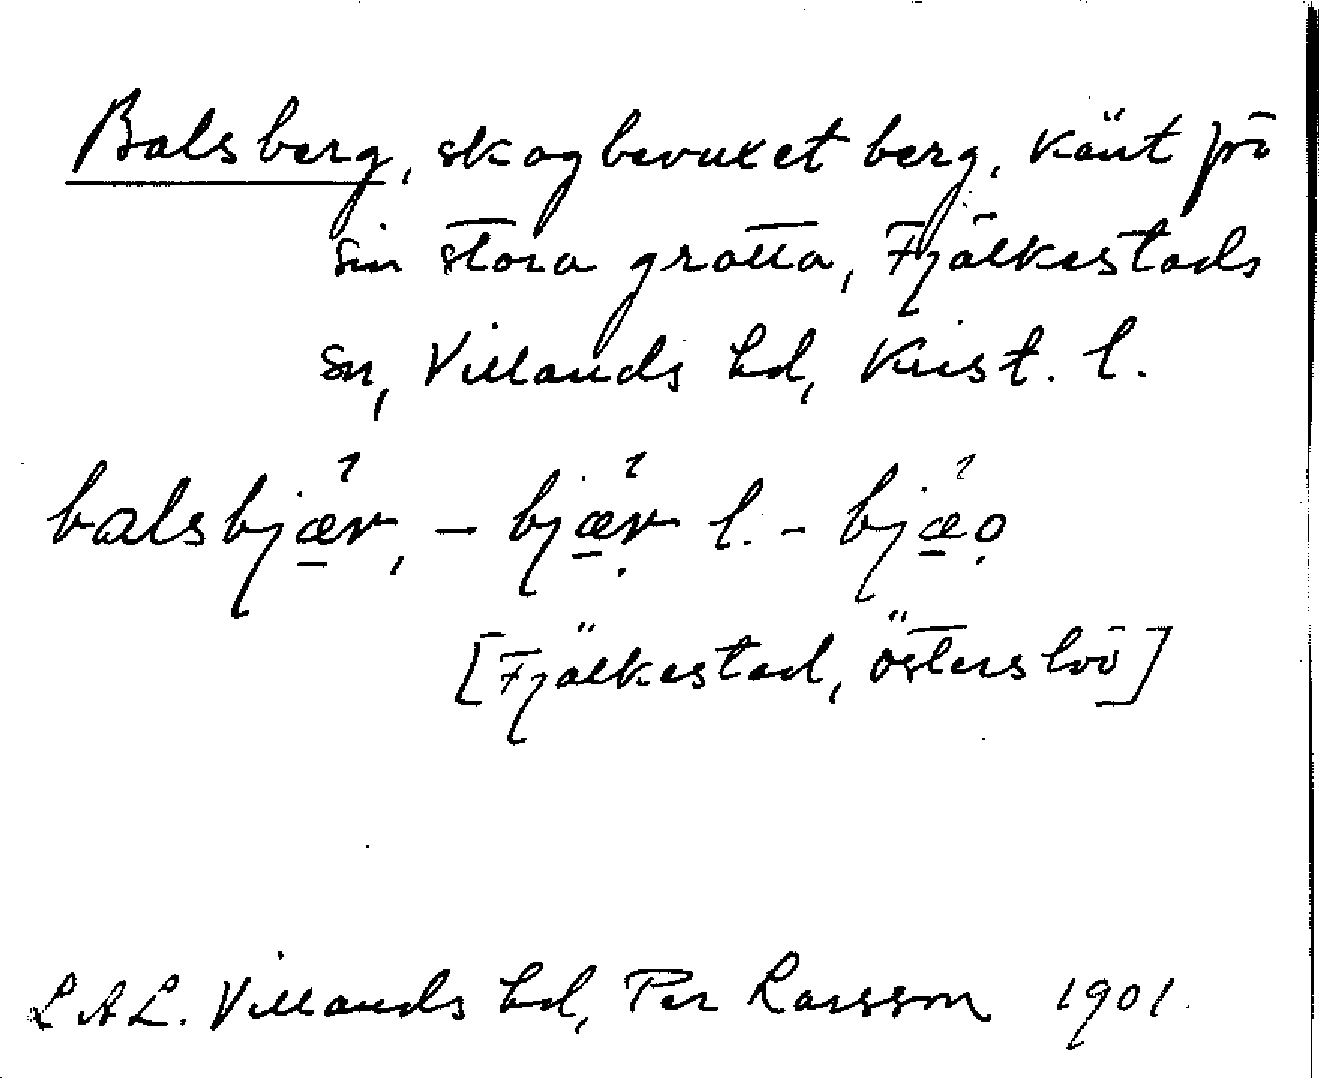 Balsberg, skogbevuxet berg, känt på
sin stora grotta, Fjälkestads
sn, Villands hd, Krist. l.
balsbjǽ̱r, – bjǽ̱ṛ l. – bjǽ̱ọ
[Fjälkestad, Österslöv]
L A L. Villands hd, Per Larsson 1901.